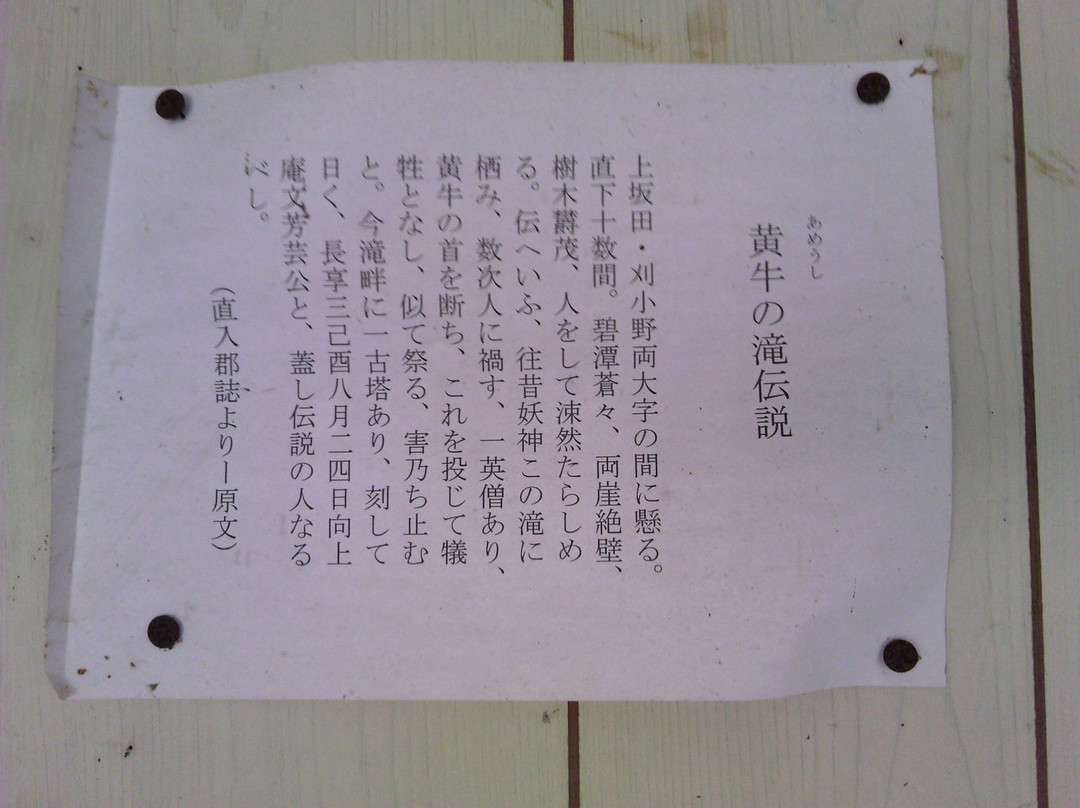 あめうし
黄牛の滝伝説
上坂田・刈小野両大字の間に懸る。
直下十数間。碧潭蒼々、両崖絶壁、
樹木欝茂、人をして涑然たらしめ
る。伝へいふ、往昔妖神この滝に
栖み、数次人に禍す、一英僧あり、
黄牛の首を断ち、これを投じて犠
牲となし、似て祭る、害乃ち止む
と。今滝畔に一古塔あり、刻して
日く、長享三己酉八月二四日向上
庵文芳芸公と、蓋し伝説の人なる
べし。
（直入郡誌よりー原文）